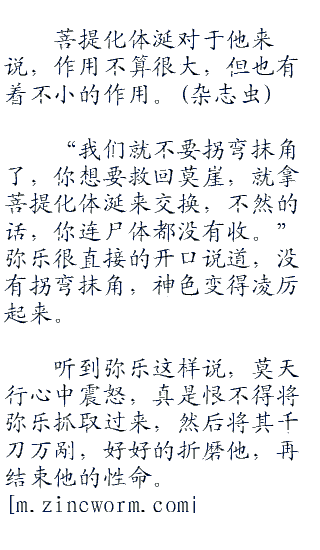 菩提化体涎对于他来
说，作用不算很大，但也有
着不小的作用。(杂志虫)
“我们就不要拐弯抹角
了，你想要救回莫崖，就拿
菩提化体涎来交换，不然的
话，你连尸体都没有收。”
弥乐很直接的开口说道，没
有拐弯抹角，神色变得凌厉
起来。
听到弥乐这样说，莫天
行心中震怒，真是恨不得将
弥乐抓取过来，然后将其千
刀万剐，好好的折磨他，再
结束他的性命。
[m.zincworm.com]